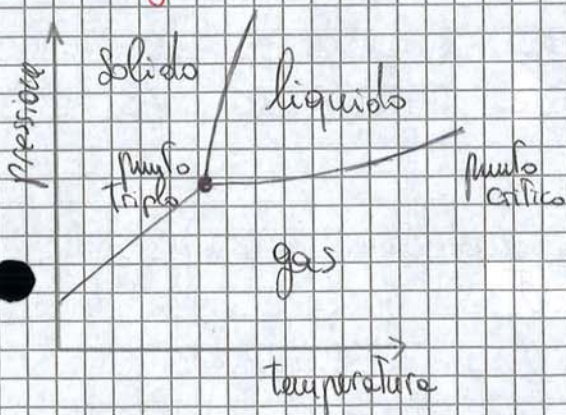 pressione
solido
liquido
punto
triplo
punto
critico
gas
temperatura